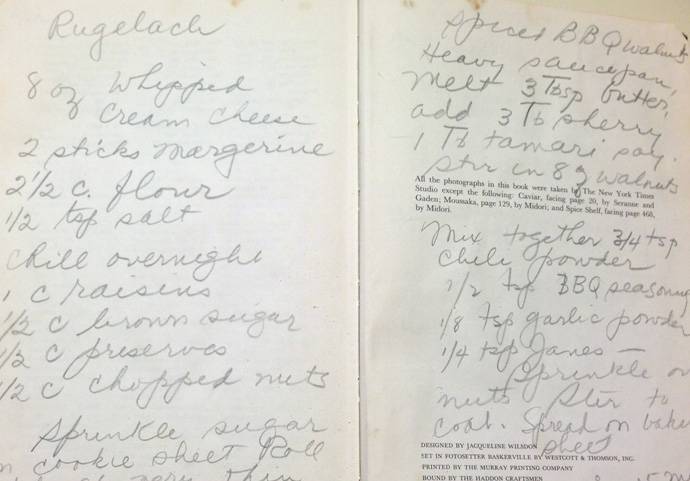 Rugelach
8 oz Whipped
Cream Cheese
2 sticks Margerine
2 1/2 c. flour
1/2 tsp salt
Chill overnight
1 c raisins
1/2 c brown sugar
1/2 c preserves
1/2 c chopped nuts
Sprinkle sugar
on cookie sheet Roll
very thin
Spiced BBQ walnuts
Heavy saucepan,
Melt 3 Tbsp butter,
add 3 Tb sherry
1 Tb tamari soy.
Stir in 8 oz walnuts
All the photographs in this book were taken by The New York Times
Studio except the following: Caviar, facing page 20, by Seranne and
Gaden; Moussaka, page 129, by Midori; and Spice Shelf, facing page 468,
by Midori.
Mix together 3/4 tsp
chili powder
1/2 tsp BBQ seasoning
1/8 tsp garlic powder
1/4 tsp Janes —
Sprinkle on
nuts Stir to
coat. Spread on baking
sheet
DESIGNED BY JACQUELINE WILSDON
SET IN FOTOSETTER BASKERVILLE BY WESTCOTT & THOMSON, INC.
PRINTED BY THE MURRAY PRINTING COMPANY
BOUND BY THE HADDON CRAFTSMEN